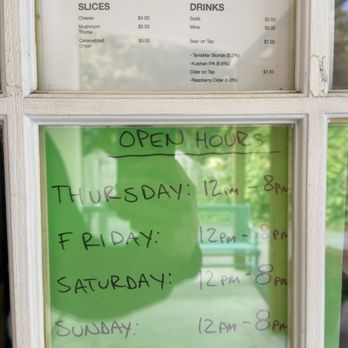 SLICES DRINKS
Cheese $4.00 Soda
Mushroom $5.00 Wine
Thyme
Caramelized $5.00 Beer on Tap $7.00
Onion
- TerraMar Blonde
-Kulshan IPA
Cider on Tap $7.50
-Raspberry Cider
OPEN HOURS
THURSDAY: 12PM - 8PM
FRIDAY: 12PM - 8PM
SATURDAY: 12PM - 8PM
SUNDAY: 12PM - 8PM